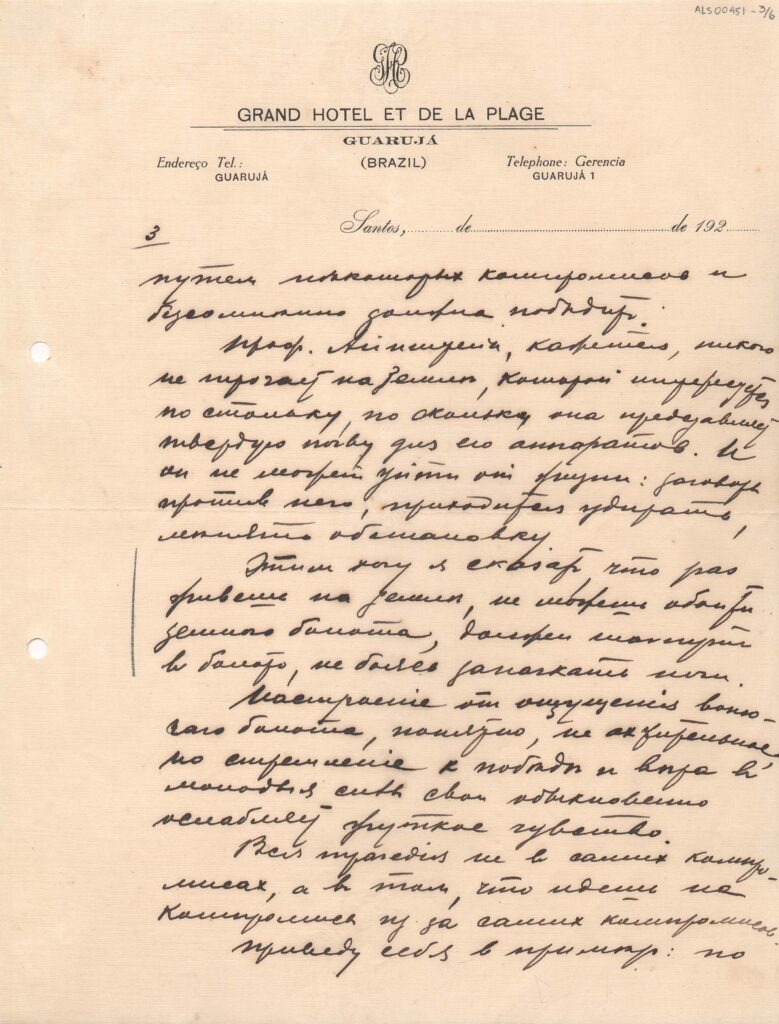 ALS00451 - 3/6
GRAND HOTEL ET DE LA PLAGE
GUARUJÁ
Endereço Tel.: (BRAZIL) Telephone: Gerencia
GUARUJÁ GUARUJÁ 1
3 Santos, de de 192
путем некоторых компромисов и
безсомненно должна победить.
Проф. Айнштейн, кажется, никого
не трогает на земле, которой интересуется
по стольку, по скольку она представляет
твердую почву для его аппаратов. И
он не может уйти от жизни: заговор
против него, приходится удирать,
менять обстановку
Этим хочу я сказать, что раз
живешь на земле, не можешь обойти
земного болота, должен
в болото, не боясь запачкать ноги.
Настроение от ощущения воню-
чаго болота, понятно, не ахительное,
но стремление к победе и вера в
молодыя силы свои обыкновенно
ослабляет жуткое чувство.
Вся трагедия не в самих компро-
мисах, а в том, что идешь на
компромисы из за самих компромисов.
Приведу себя в пример: по